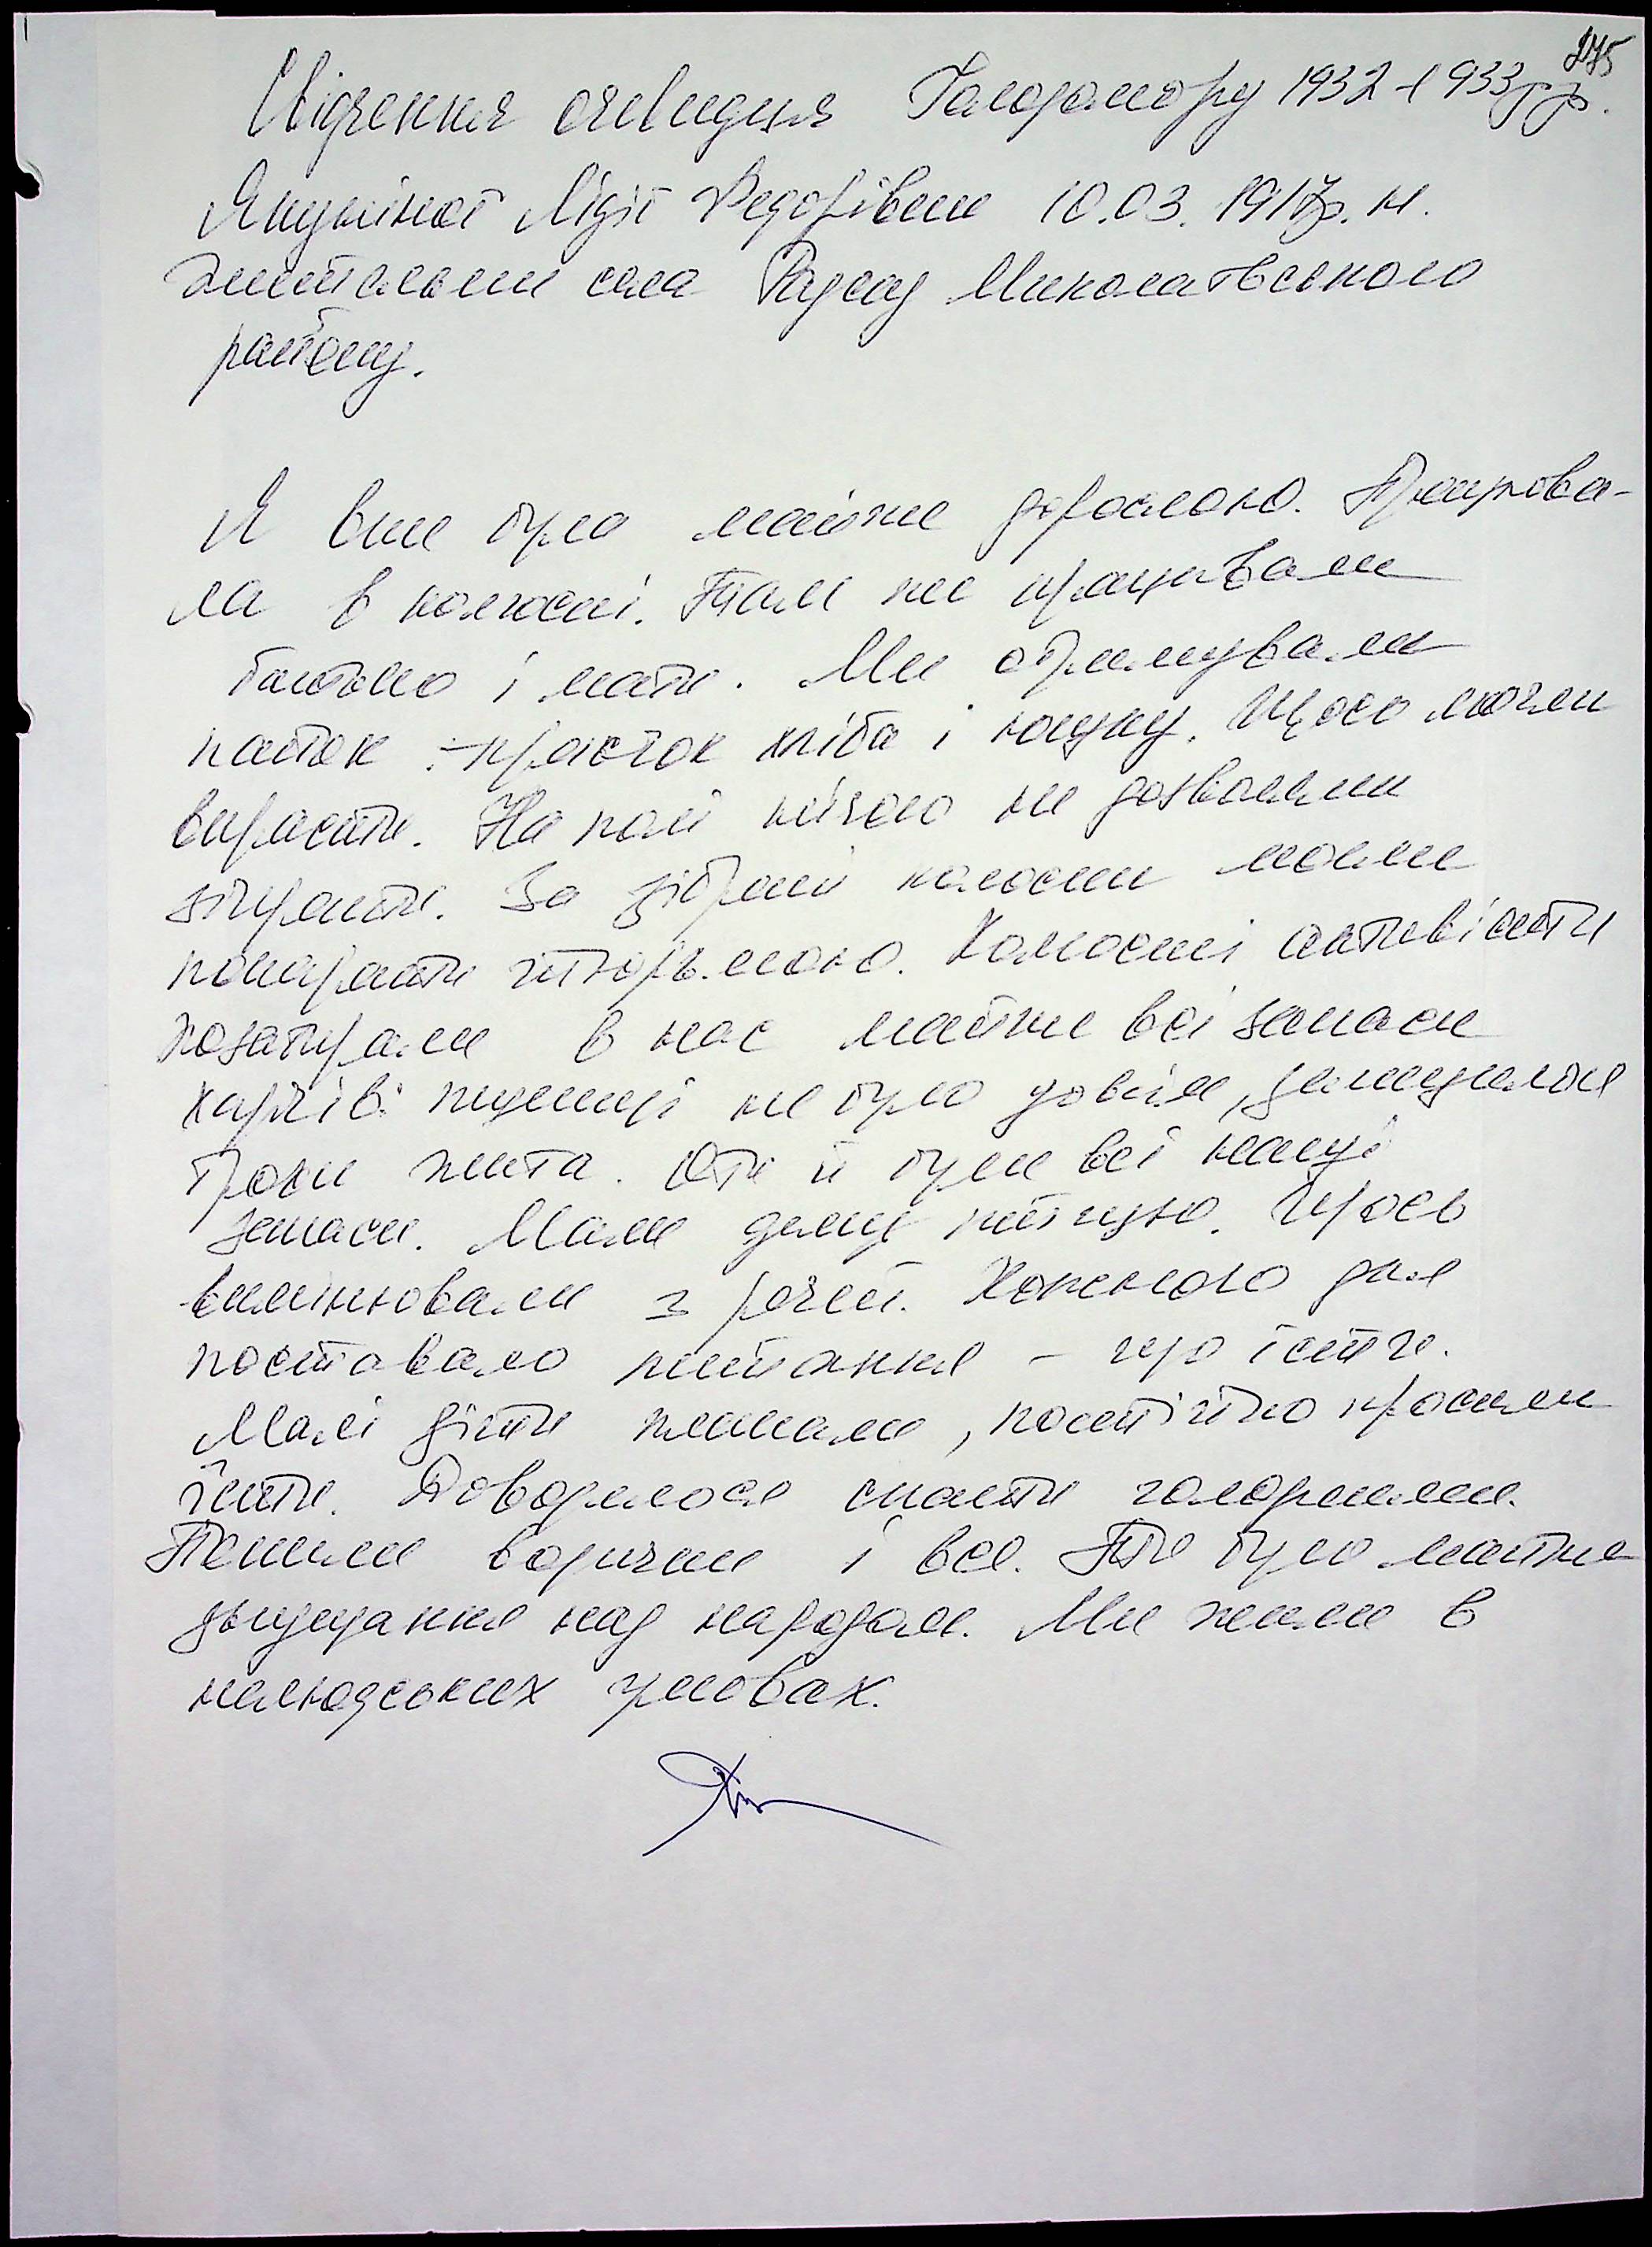 275
Свідчення очевидця Голодомору 1932-1933рр.
Якушіної Лідії Федорівни 10.03.1917р.н.
жительки села Миколаївського
району.
Я вже була майже дорослою. Працюва-
ла в колгоспі. Там же працювали
батько і мати. Ми отримували
пайок - кусок хліба і юшку. Щось могли
вкрасти. На полі нічого не дозволяли
збирати. За зібрані колоски могли
покарати тюрмою. Колгоспні активісти
позабирали в нас майже всі запаси
харчів: пшениці не було зовсім, залишилося
трохи жита. Оті й були всі наші
запаси. Мали дяку птицю. Щось
вимінювали з речей. Кожного дня
поставало питання - що їсти.
Малі діти плакали, постійно просили
їсти. Доводилося спати голодними.
Попили водички і все. Це було майже
знущання над народом. Ми жили в
нелюдських умовах.